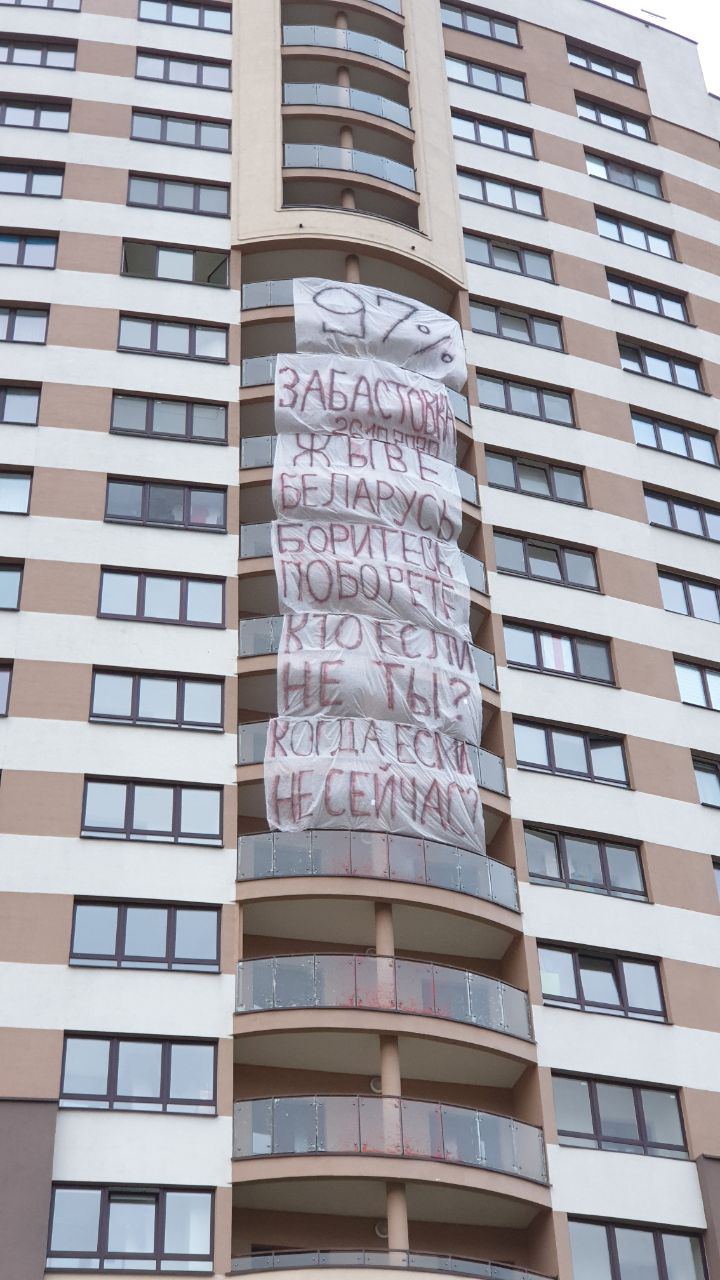 97%
ЗАБАСТОВКА
26.10.2020
ЖЫВЕ
БЕЛАРУСЬ
БОРИТЕСЬ
ПОБОРЕТЕ
КТО ЕСЛИ
НЕ ТЫ?
КОГДА ЕСЛИ
НЕ СЕЙЧАС?